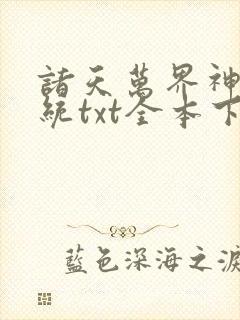 諸天萬界神
統txt全本下
藍色深海之淚